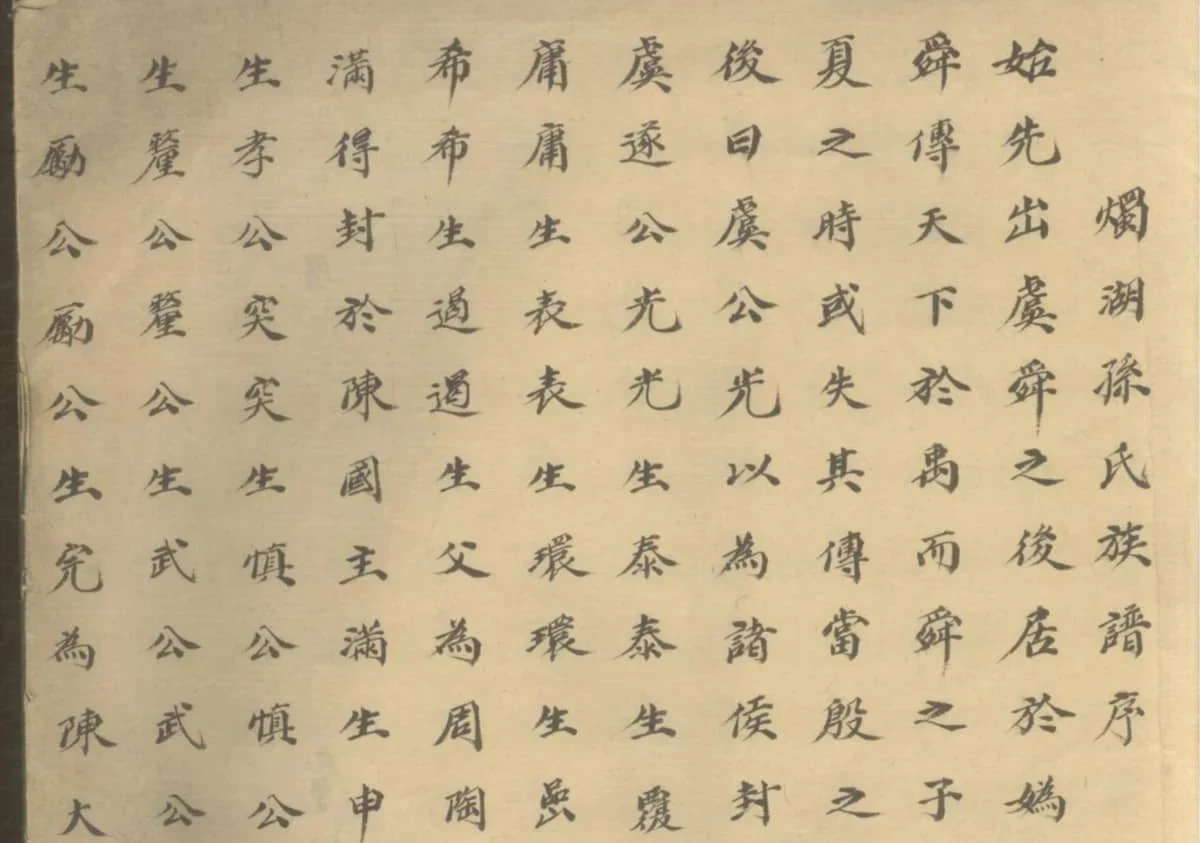 燭湖孫氏族譜序
始先出虞舜之後居於媯
舜傳天下於禹而舜之子
夏之時或失其傳當殷之
後曰虞公光以為諸侯封
虞遂公光光生泰泰生覆
庸庸生表表生環環生
希希生遏遏生父為周陶
滿得封於陳國主滿生申
生孝公突突生慎公慎公
生釐公釐公生武公武公
生勵公勵公生完為陳大